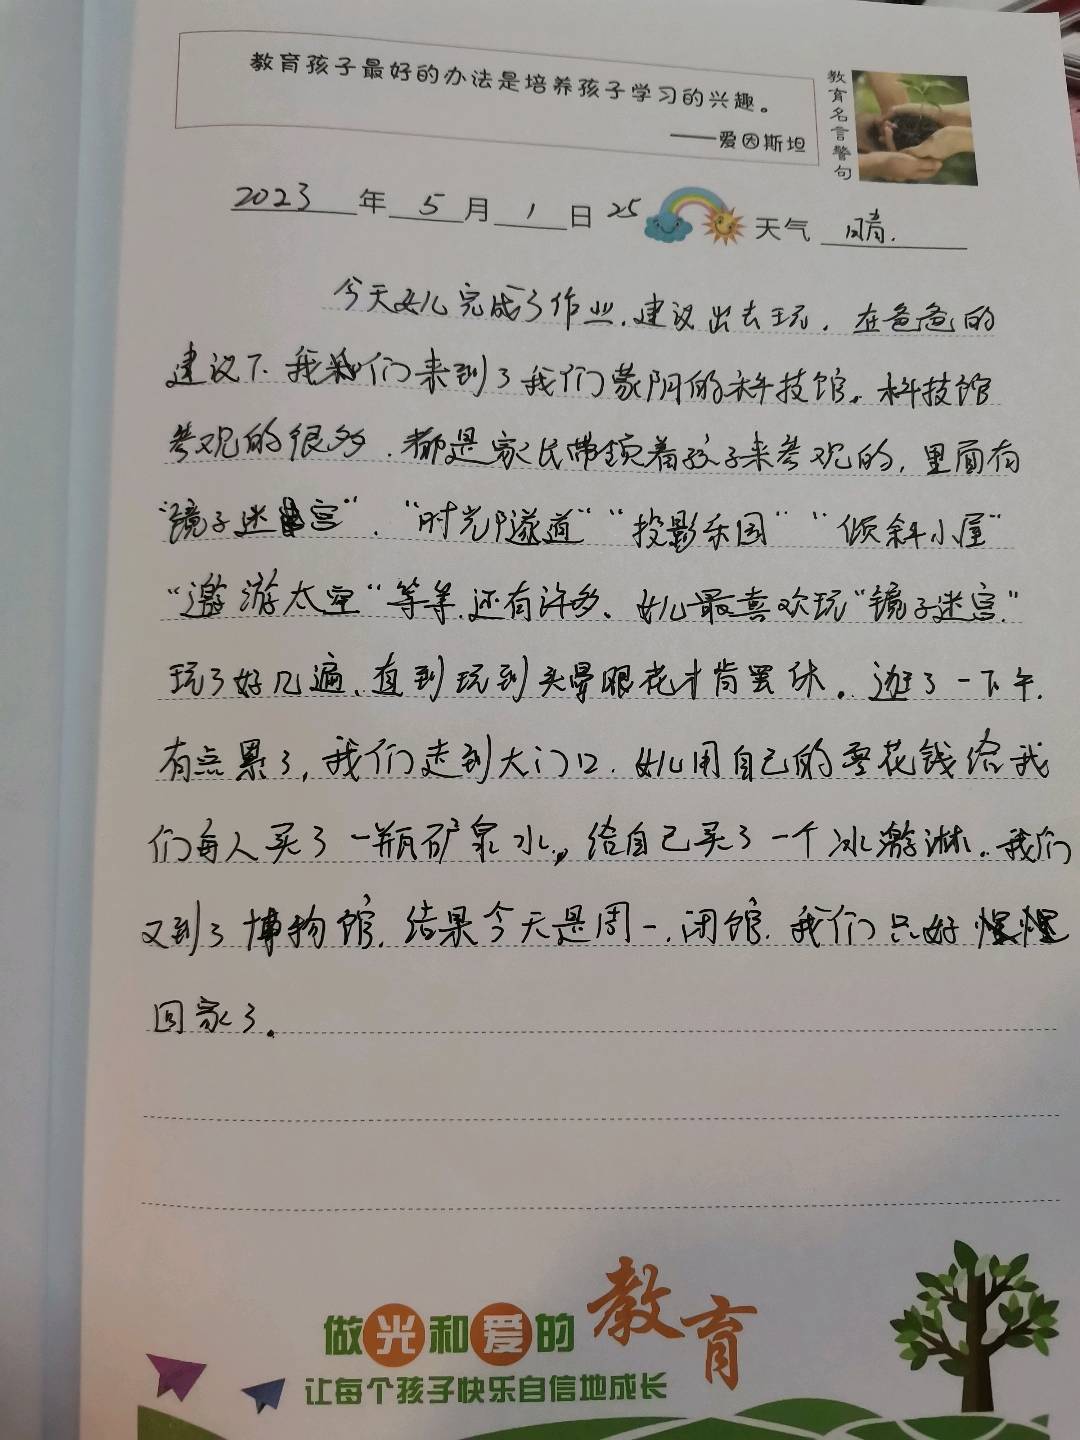 教育孩子最好的办法是培养孩子学习的兴趣。
——爱因斯坦
教育名言警句
2023年5月1日 25 天气 晴.
今天女儿完成了作业.建议出去玩.在爸爸的
建议下.我们来到了我们蒙阴的科技馆。科技馆
参观的很多.都是家长带领着孩子来参观的,里面有
“镜子迷宫”.“时光隧道”“投影乐园”“倾斜小屋”
“遨游太空”等等.还有许多、女儿最喜欢玩“镜子迷宫.”
玩了好几遍、直到玩到头晕眼花才肯罢休。逛了一下午.
有点累了,我们走到大门口.女儿用自己的零花钱给我
们每人买了一瓶矿泉水,给自己买了一个冰激淋.我们
又到了博物馆.结果今天是周一.闭馆.我们只好
回家了.
做光和爱的教育
让每个孩子快乐自信地成长